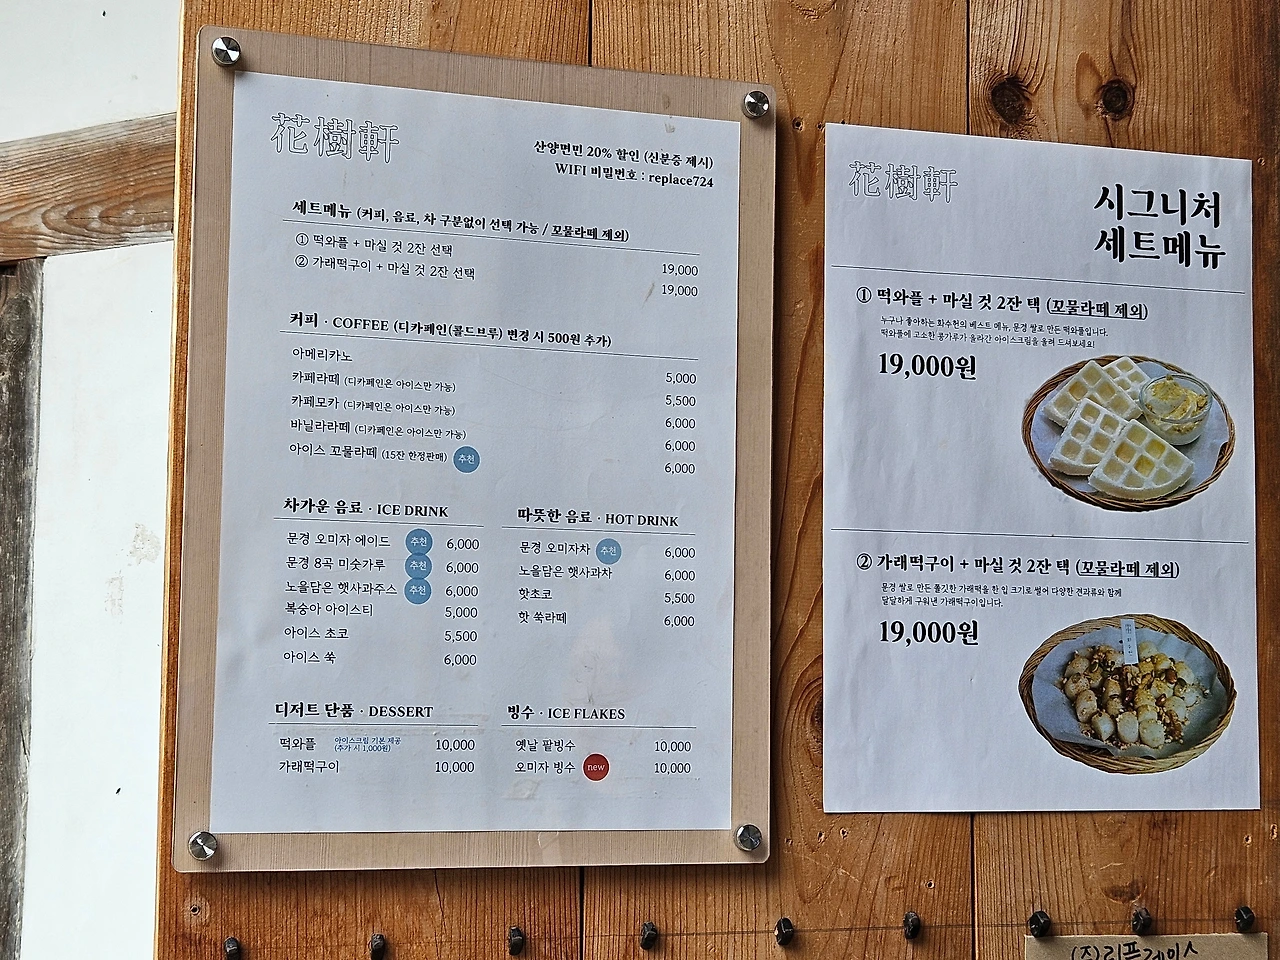 花樹軒
산양면민 20% 할인 (신분증 제시)
WIFI 비밀번호 : replace724
세트메뉴 (커피, 음료, 차 구분없이 선택 가능 / 꼬물라떼 제외)
① 떡와플 + 마실 것 2잔 선택 19,000
② 가래떡구이 + 마실 것 2잔 선택 19,000
커피 · COFFEE (디카페인(콜드브루) 변경 시 500원 추가)
아메리카노 5,000
카페라떼 (디카페인은 아이스만 가능) 5,500
카페모카 (디카페인은 아이스만 가능) 6,000
바닐라라떼 (디카페인은 아이스만 가능) 6,000
아이스 꼬물라떼 (15잔 한정판매) 추천 6,000
차가운 음료 · ICE DRINK
문경 오미자 에이드 추천 6,000
문경 8곡 미숫가루 추천 6,000
노을담은 햇사과주스 추천 6,000
복숭아 아이스티 5,000
아이스 초코 5,500
아이스 쑥 6,000
따뜻한 음료 · HOT DRINK
문경 오미자차 추천 6,000
노을담은 햇사과차 6,000
핫초코 5,500
핫 쑥라떼 6,000
디저트 단품 · DESSERT
떡와플 아이스크림 기본 제공 10,000
(추가 시 1,000원)
가래떡구이 10,000
빙수 · ICE FLAKES
옛날 팥빙수 10,000
오미자 빙수 new 10,000
花樹軒
시그니처
세트메뉴
① 떡와플 + 마실 것 2잔 택 (꼬물라떼 제외)
누구나 좋아하는 화수헌의 베스트 메뉴, 문경 쌀로 만든 떡와플입니다.
떡와플에 고소한 콩가루가 올라간 아이스크림을 올려 드셔보세요!
19,000원
② 가래떡구이 + 마실 것 2잔 택 (꼬물라떼 제외)
문경 쌀로 만든 쫄깃한 가래떡을 한 입 크기로 썰어 다양한 견과류와 함께
달달하게 구워낸 가래떡구이입니다.
19,000원
(주)리플레이스